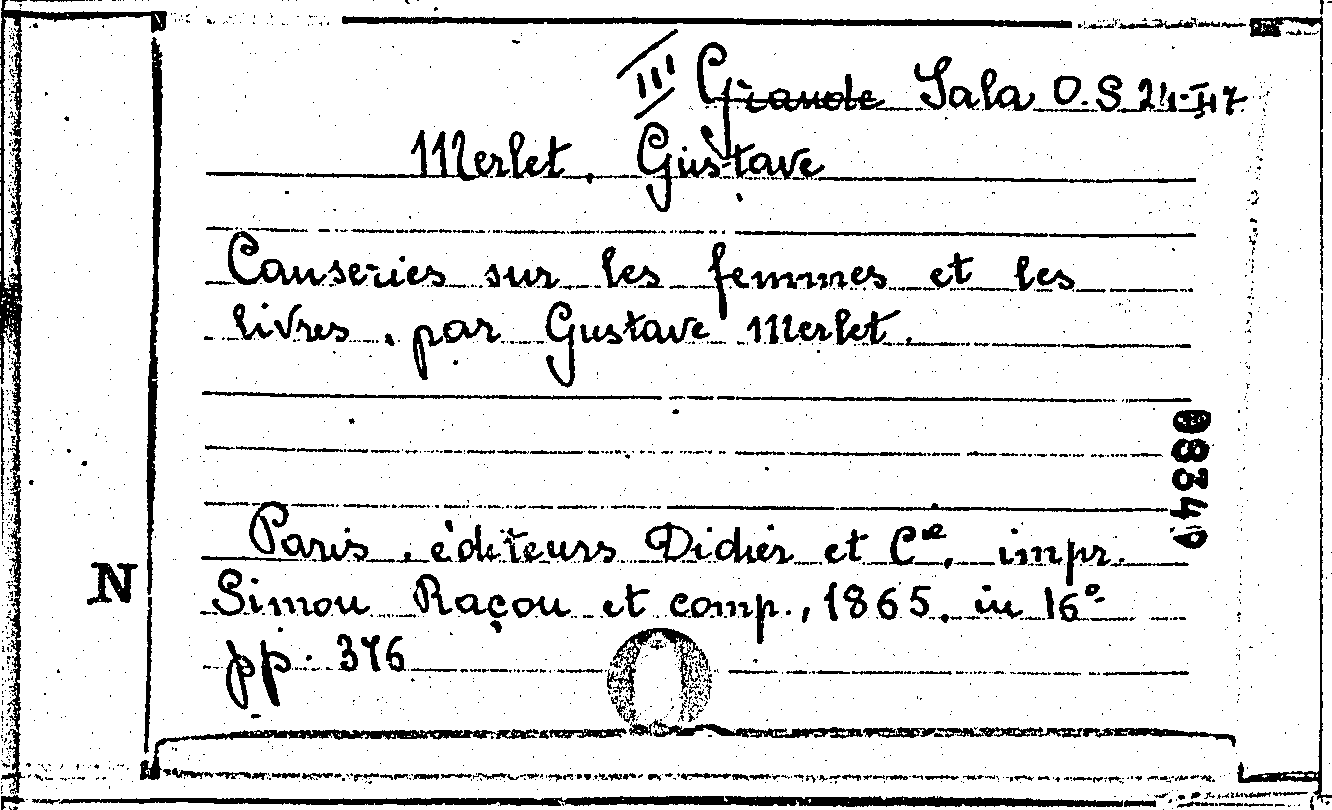 III Grande Sala O.S 24-II-47
Merlet. Gustave
Causeries sur les femmes et les
livres, par Gustave Merlet.
08349
Paris, éditeurs Didier et Cie, impr.
N
Simon Raçon et comp., 1865, in 16°-
pp. 376